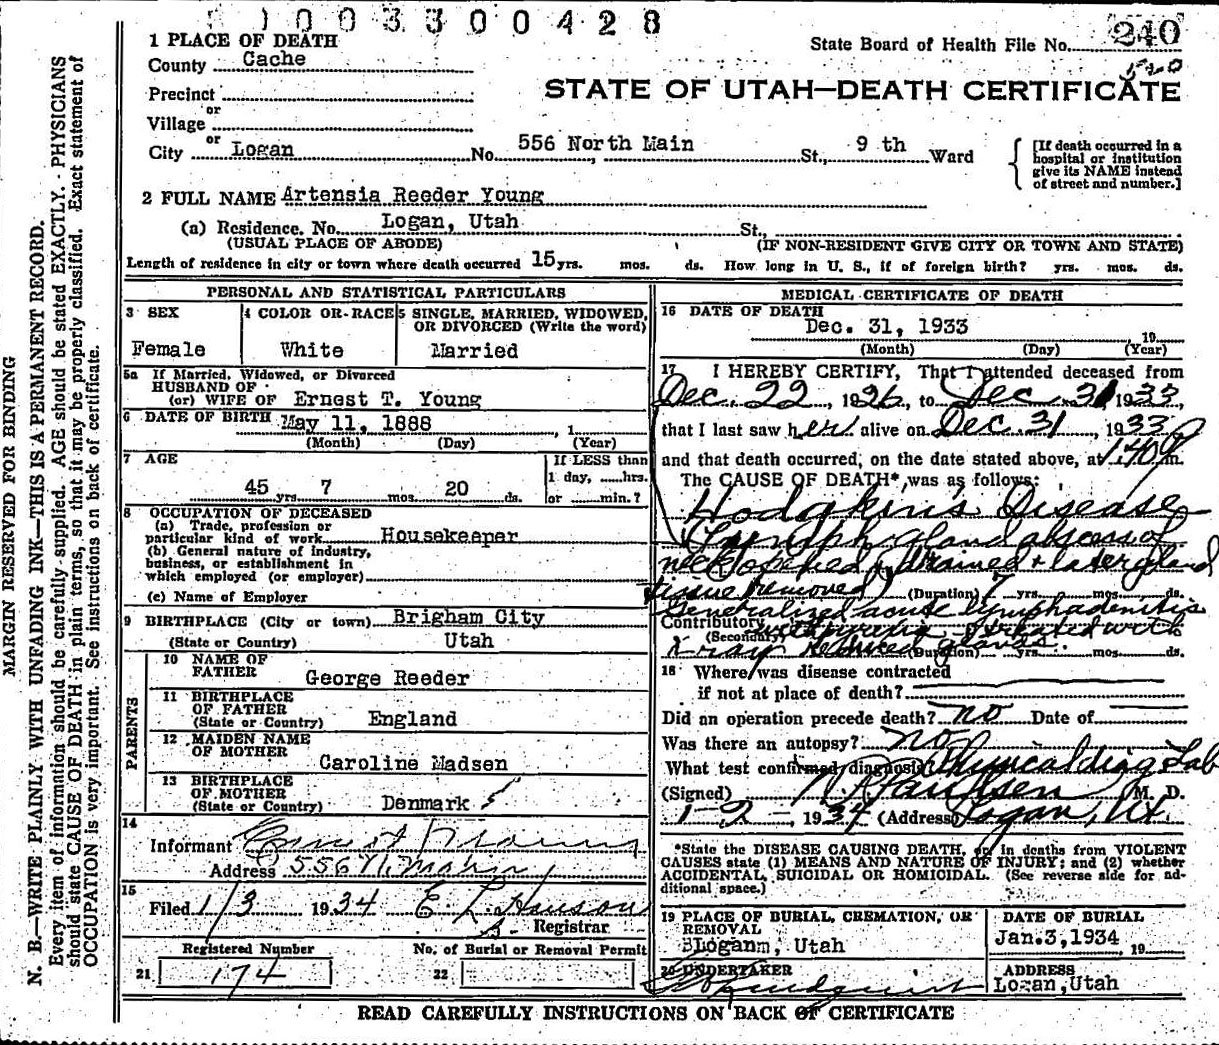 0 0 3 3 0 0 4 2 8
240
1 PLACE OF DEATH
State Board of Health File No.
County Cache
520
Precinct
STATE OF UTAH—DEATH CERTIFICATE
or
Village
or
City Logan No. 556 North Main St., 9 th Ward
[If death occurred in a
hospital or institution
give its NAME instead
of street and number.]
2 FULL NAME Artensia Reeder Young
(a) Residence. No. Logan, Utah St.,
(USUAL PLACE OF ABODE) (IF NON-RESIDENT GIVE CITY OR TOWN AND STATE)
Length of residence in city or town where death occurred 15 yrs. mos. ds. How long in U. S., if of foreign birth? yrs. mos. ds.
PERSONAL AND STATISTICAL PARTICULARS
3 SEX
Female
4 COLOR OR RACE
White
5 SINGLE, MARRIED, WIDOWED,
OR DIVORCED (Write the word)
Married
5a If Married, Widowed, or Divorced
HUSBAND OF
(or) WIFE OF Ernest T. Young
6 DATE OF BIRTH May 11, 1888 , 1
(Month) (Day) (Year)
7 AGE
45 yrs 7 mos. 20 ds.
If LESS than
1 day, ......hrs.
or ......min.?
8 OCCUPATION OF DECEASED
(a) Trade, profession or
particular kind of work Housekeeper
(b) General nature of industry,
business, or establishment in
which employed (or employer)
(c) Name of Employer
9 BIRTHPLACE (City or town) Brigham City
(State or Country) Utah
PARENTS
10 NAME OF
FATHER George Reeder
11 BIRTHPLACE
OF FATHER
(State or Country) England
12 MAIDEN NAME
OF MOTHER
Caroline Madsen
13 BIRTHPLACE
OF MOTHER
(State or Country) Denmark
14
Informant Ernest
Address 556 N. Main
15
Filed 1/3 1934 E. L. Hanson
Registrar
Registered Number No. of Burial or Removal Permit
21 174 22
MEDICAL CERTIFICATE OF DEATH
16 DATE OF DEATH
Dec. 31, 1933 19
(Month) (Day) (Year)
17 I HEREBY CERTIFY, That I attended deceased from
Dec. 22, 1926, to Dec 31 1933,
that I last saw her alive on Dec. 31, 1933
and that death occurred, on the date stated above, at 1:40 m.
The CAUSE OF DEATH* was as follows:
Hodgkin's Disease
Lymph gland abscess of
neck opened & drained & later gland
tissue removed (Duration) 7 yrs. mos. ds.
Generalized acute lymphadenitis
Contributory
(Secondary) treated with
X-ray reduced glands. (Duration) yrs. mos. ds.
18 Where was disease contracted
if not at place of death?
Did an operation precede death? no Date of
Was there an autopsy? no
What test confirmed diagnosis? Physical diag Lab
(Signed) M. D.
1-2-, 1934 (Address) Logan, Ut.
*State the DISEASE CAUSING DEATH, or in deaths from VIOLENT
CAUSES state (1) MEANS AND NATURE OF INJURY; and (2) whether
ACCIDENTAL, SUICIDAL OR HOMICIDAL. (See reverse side for ad-
ditional space.)
19 PLACE OF BURIAL, CREMATION, OR
REMOVAL
Logan, Utah
DATE OF BURIAL
Jan.3,1934 19
20 UNDERTAKER
ADDRESS
Logan, Utah
READ CAREFULLY INSTRUCTIONS ON BACK OF CERTIFICATE
MARGIN RESERVED FOR BINDING
N. B.—WRITE PLAINLY WITH UNFADING INK—THIS IS A PERMANENT RECORD.
Every item of information should be carefully supplied. AGE should be stated EXACTLY. PHYSICIANS
should state CAUSE OF DEATH in plain terms, so that it may be properly classified. Exact statement of
OCCUPATION is very important. See instructions on back of certificate.